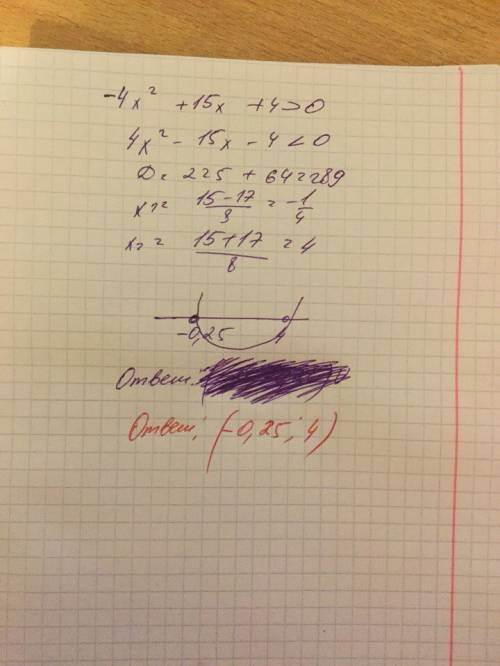 -4x² + 15x + 4 > 0
4x² - 15x - 4 < 0
D = 225 + 64 = 289
x₁ = (15-17)/8 = -1/4
x₂ = (15+17)/8 = 4
-0,25 4
Ответ:
Ответ: (-0,25; 4)